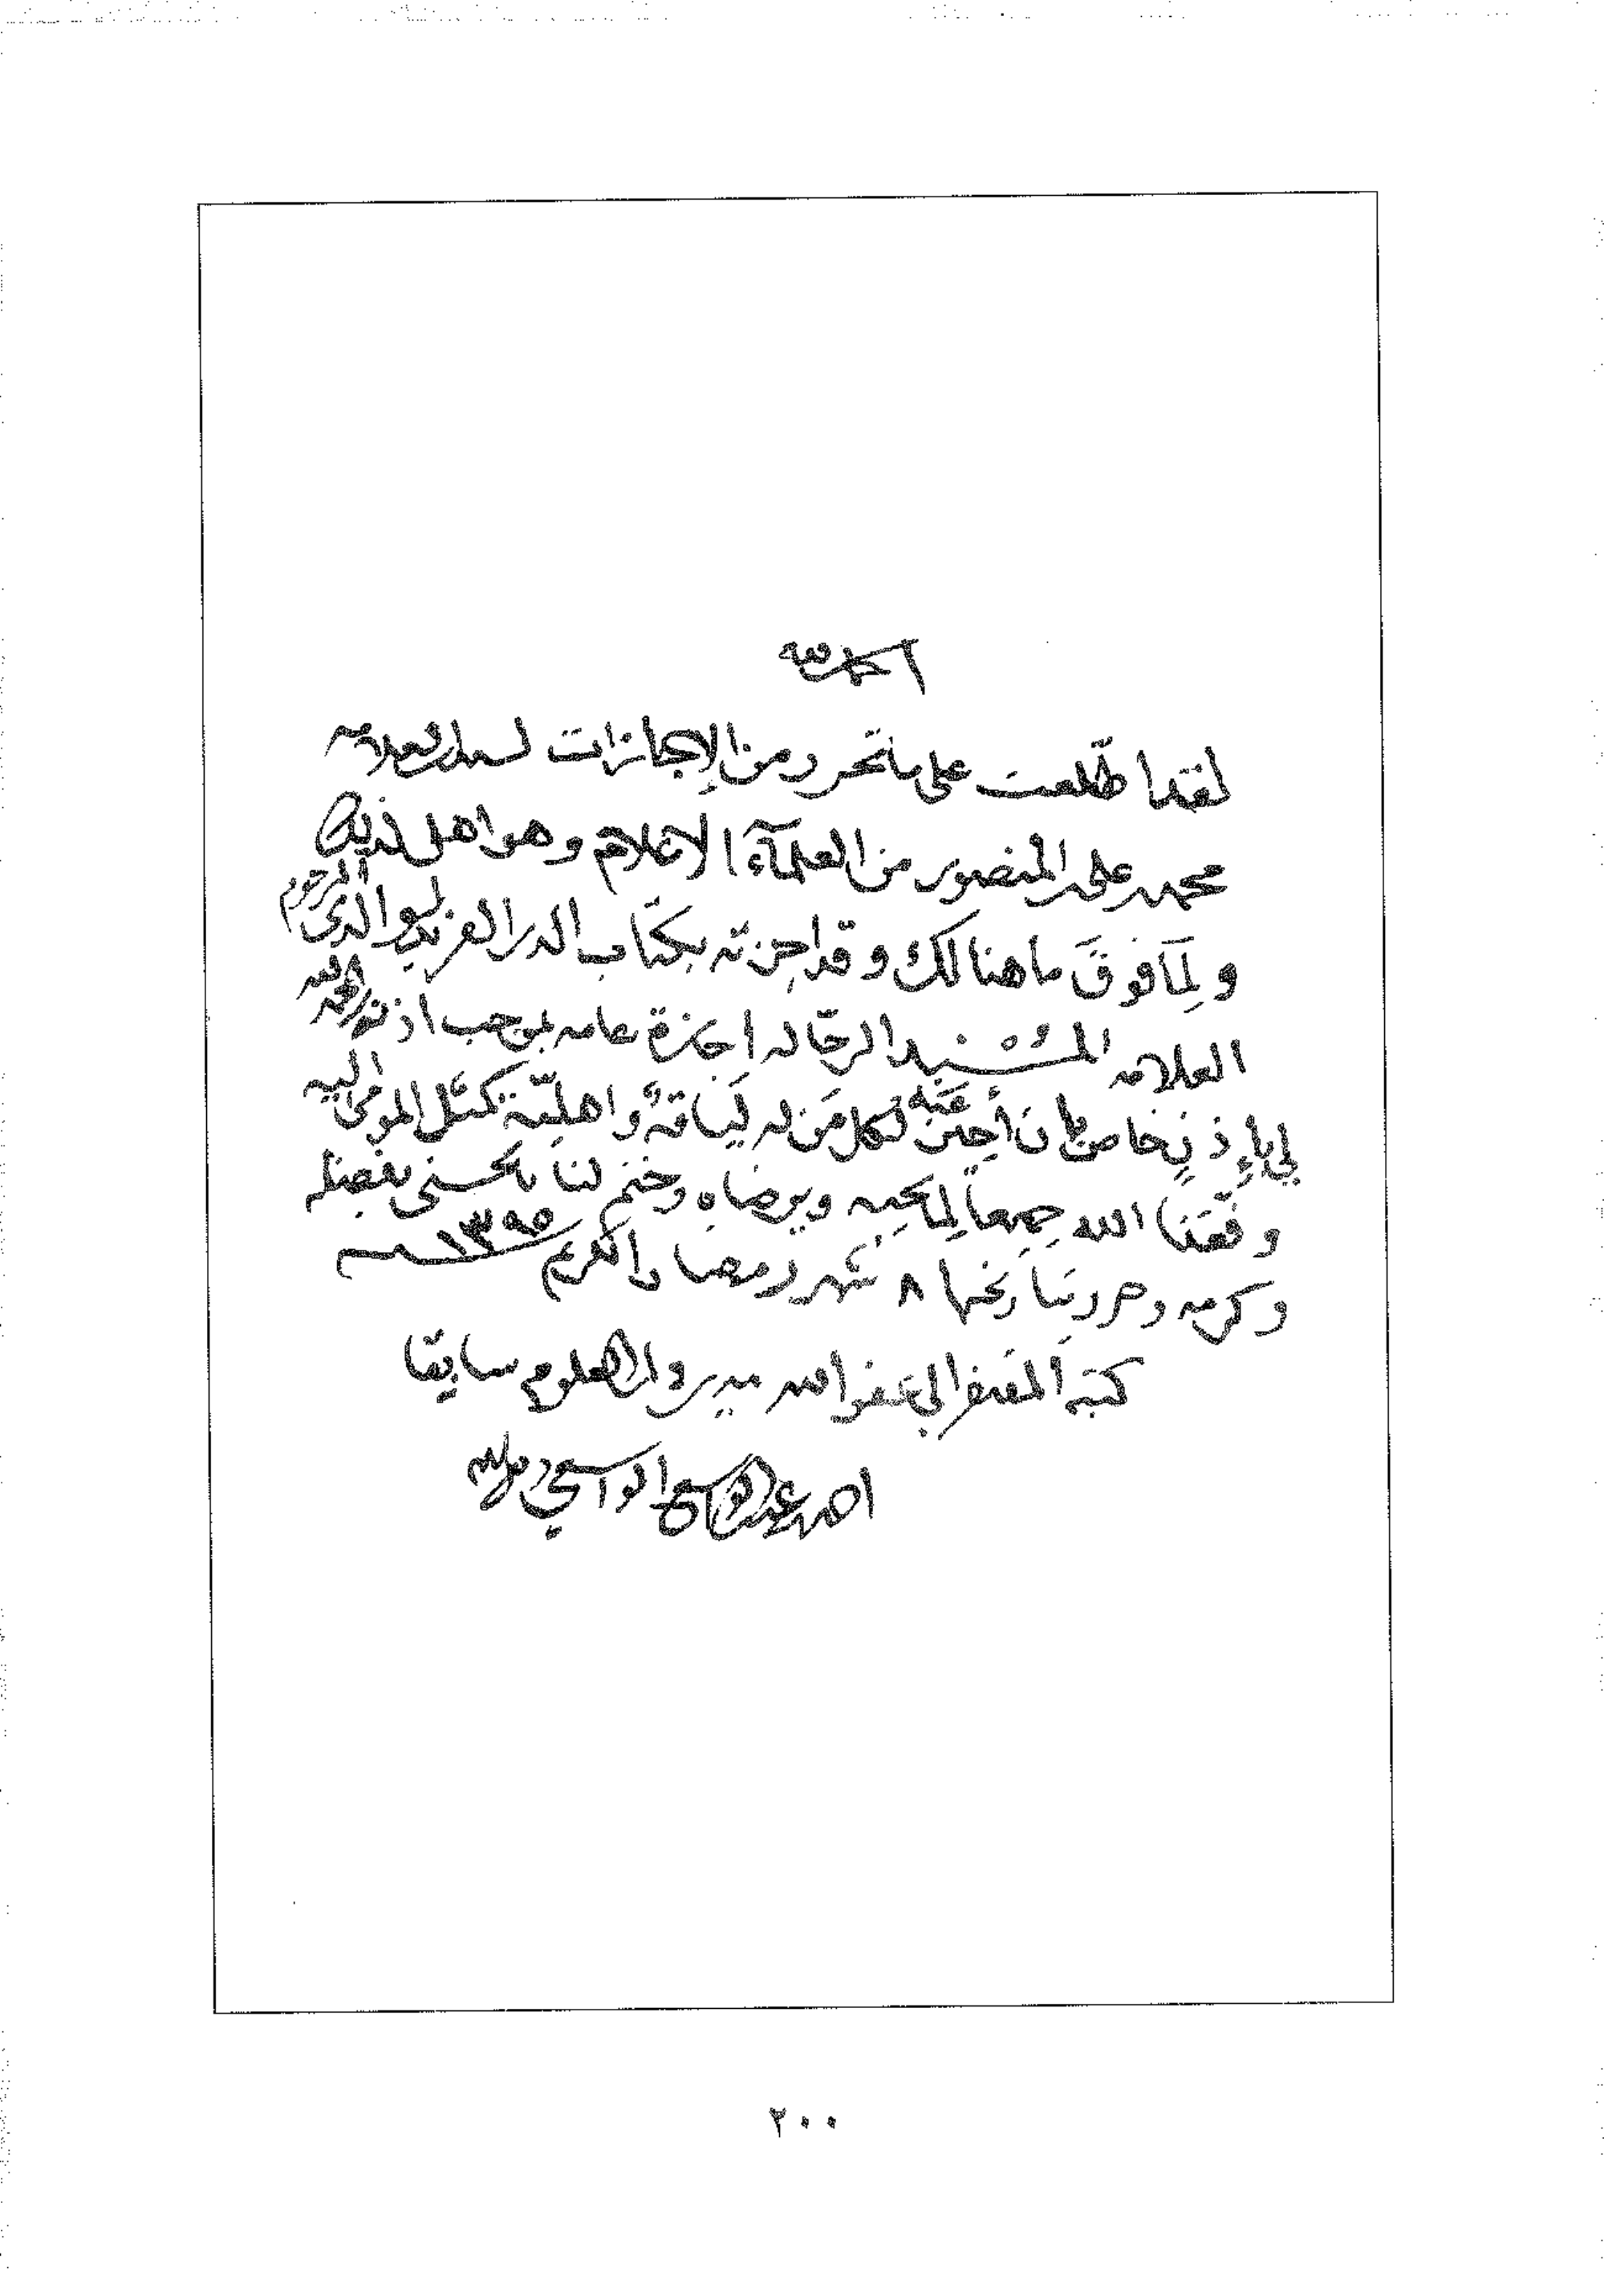 الحمد لله
لقد اطّلعت على ما تحرر من الإجازات لسيدي العلامه
محمد علي المنصور من العلمآء الاعلام وهو اهل لذلك
ولِمَا فوقَ ما هنالك وقد اجزته بكتاب الدر الفريد لوالدي المرحوم
العلامه المسند الرحّاله اجازة عامه بموجب اذنه رحمه الله
لي بإِذنٍ خاص بان أجيز عنه لكل مَن له لَيَاقةٌ واهليّة كمثل المومى اليه
وفقَنا الله جميعاً لما يحبه ويرضاه وختم لنا بالحسنى بفضله
وكرمه وحرر بتاريخها ٨ شهر رمضان الكريم ١٣٩٥
كتبه المفتقر الى عفو الله مدير دار العلوم سابقا
احمد عبد الواسع الواسعي
٢٠٠